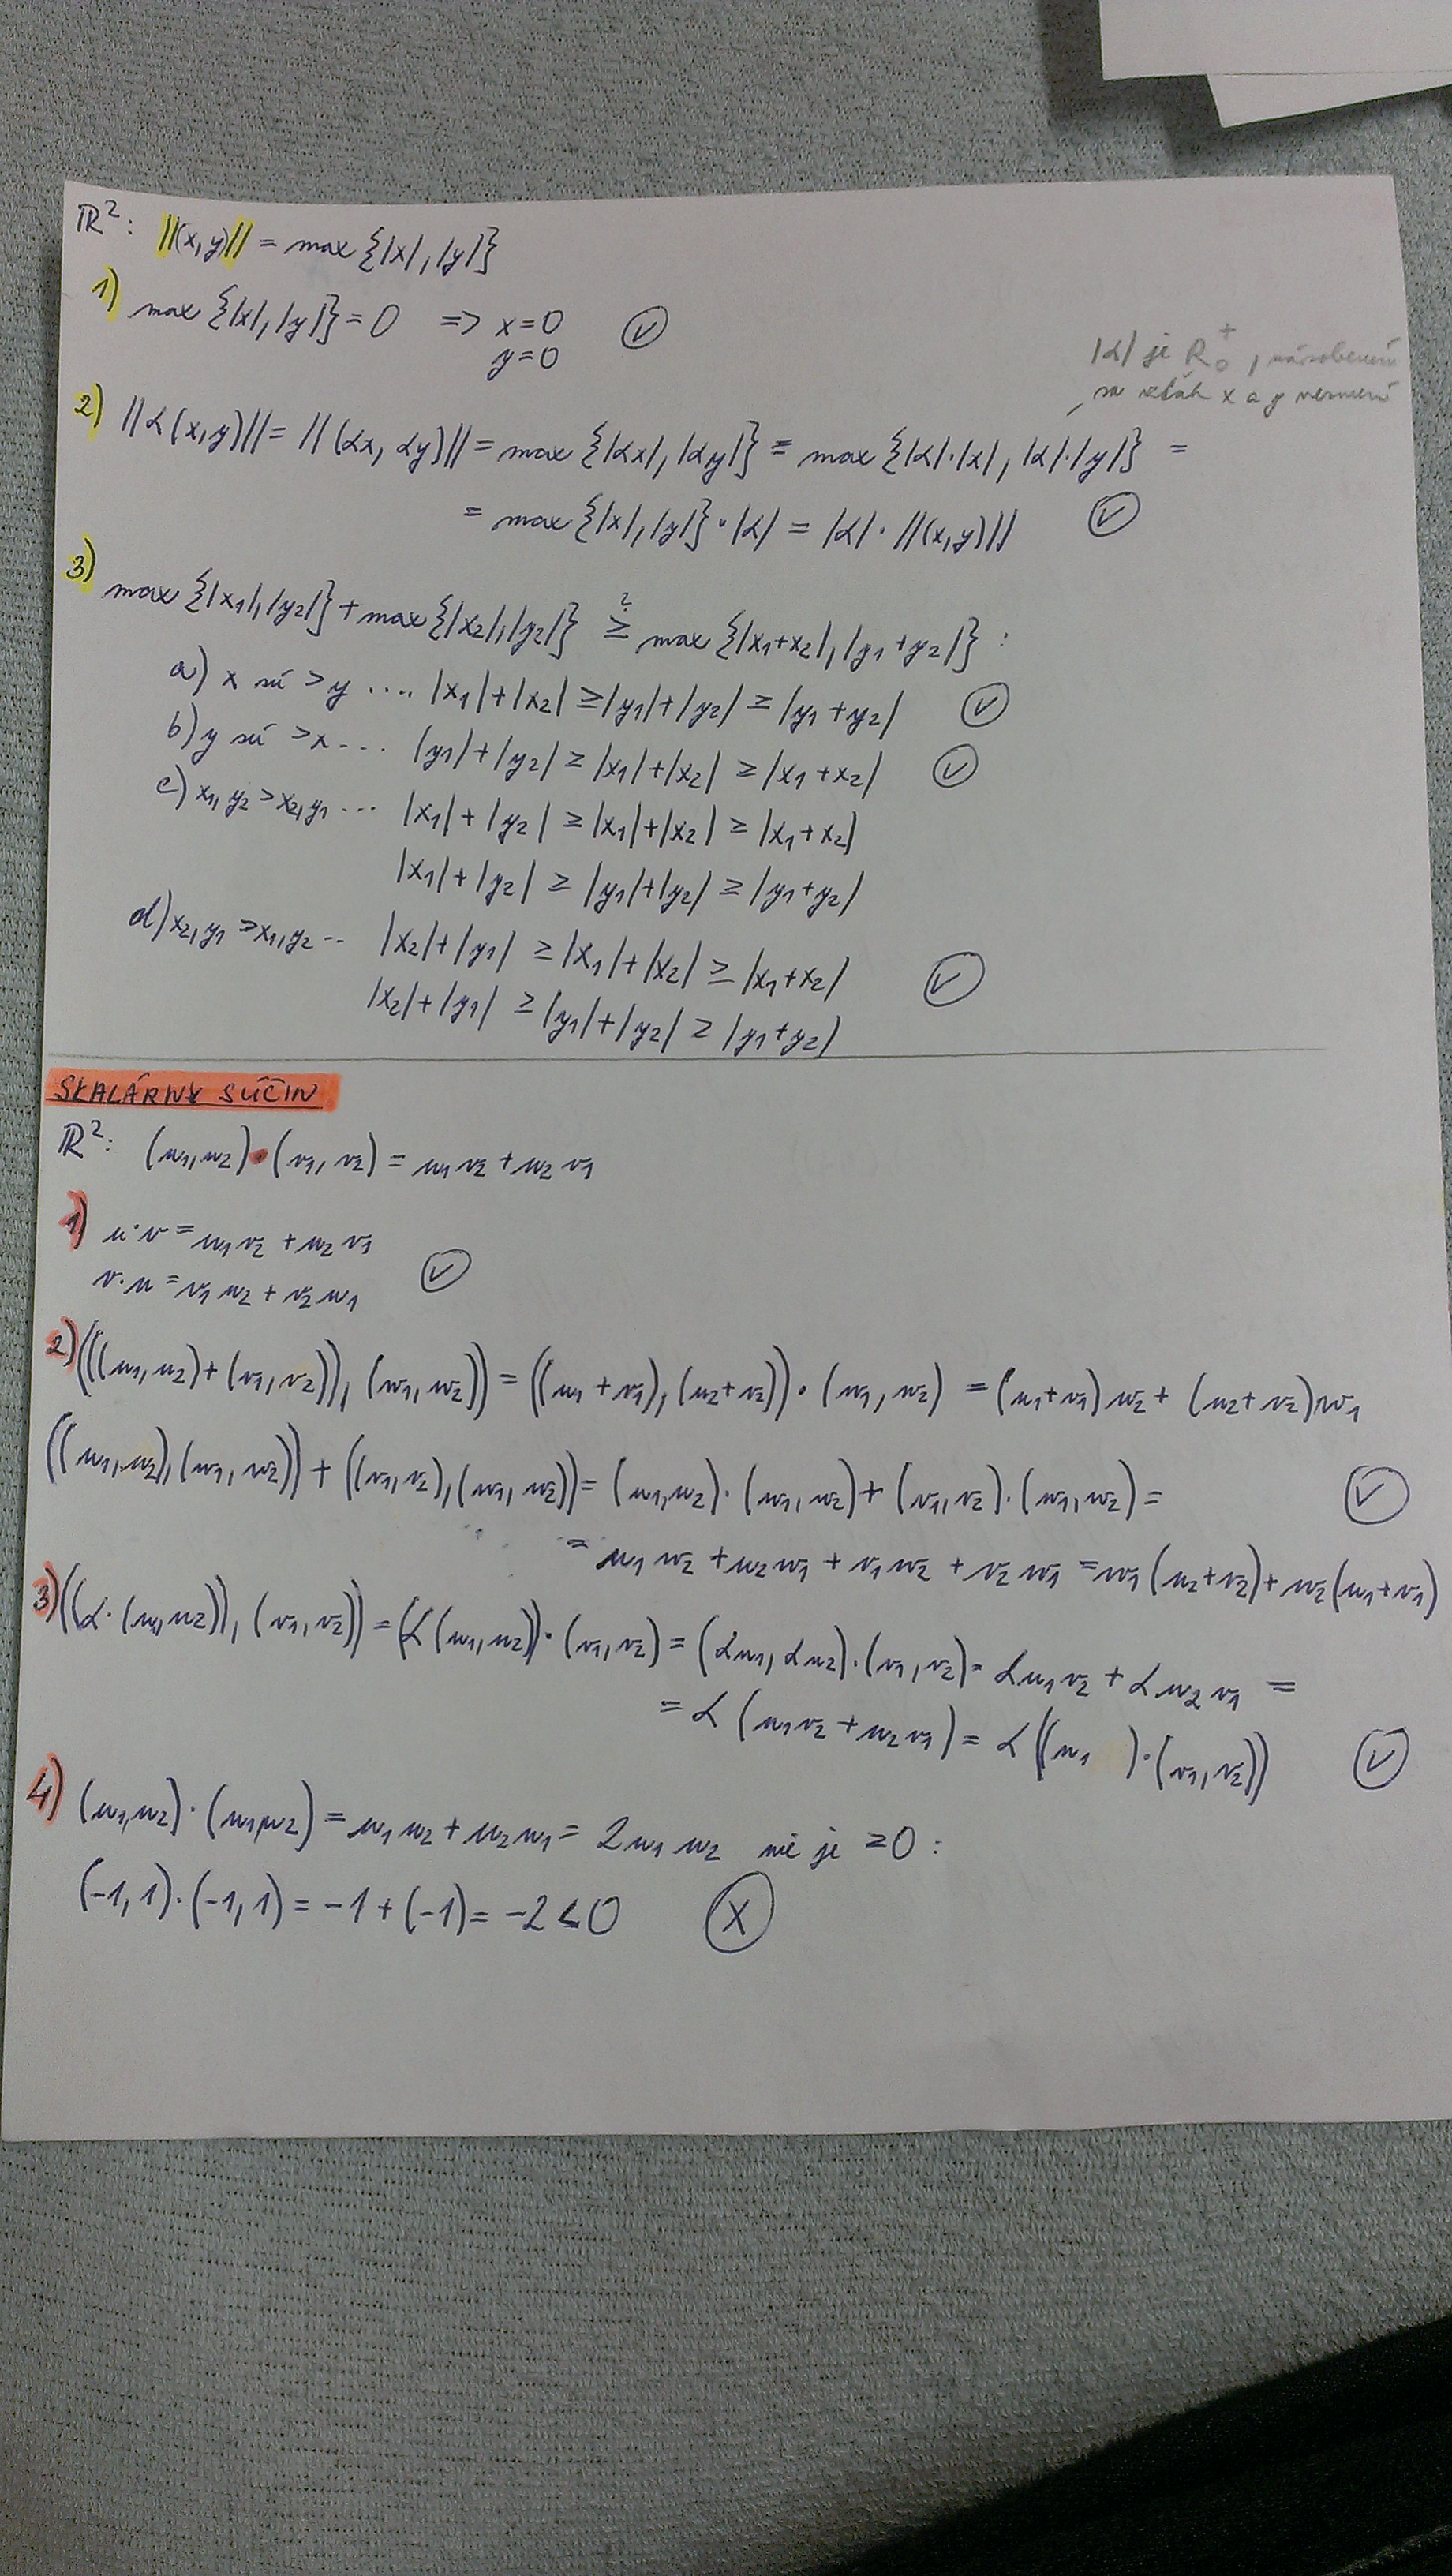 ℝ²: ||(x,y)|| = max {|x|,|y|}
1) max {|x|,|y|} = 0 => x=0
y=0
|α| je R₀⁺, násobením
sa vzťah x a y nezmení
2) ||α(x,y)|| = ||(αx, αy)|| = max {|αx|,|αy|} = max {|α|·|x|, |α|·|y|} =
= max {|x|,|y|}·|α| = |α|·||(x,y)||
3) max {|x₁|,|y₂|} + max {|x₂|,|y₂|} ≥? max {|x₁+x₂|,|y₁+y₂|} :
a) x sú >y .... |x₁|+|x₂| ≥ |y₁|+|y₂| ≥ |y₁+y₂|
b) y sú >x... |y₁|+|y₂| ≥ |x₁|+|x₂| ≥ |x₁+x₂|
c) x₁,y₂ > x₂,y₁ ... |x₁|+|y₂| ≥ |x₁|+|x₂| ≥ |x₁+x₂|
|x₁|+|y₂| ≥ |y₁|+|y₂| ≥ |y₁+y₂|
d) x₂,y₁ > x₁,y₂ .. |x₂|+|y₁| ≥ |x₁|+|x₂| ≥ |x₁+x₂|
|x₂|+|y₁| ≥ |y₁|+|y₂| ≥ |y₁+y₂|
SKALÁRNY SÚČIN
ℝ²: (u₁,u₂)·(v₁,v₂) = u₁v₂ + u₂v₁
1) u·v = u₁v₂ + u₂v₁
v·u = v₁u₂ + v₂u₁
2) (((u₁,u₂)+(v₁,v₂)),(w₁,w₂)) = ((u₁+v₁),(u₂+v₂))·(w₁,w₂) = (u₁+v₁)w₂ + (u₂+v₂)w₁
((u₁,u₂),(w₁,w₂)) + ((v₁,v₂),(w₁,w₂)) = (u₁,u₂)·(w₁,w₂)+(v₁,v₂)·(w₁,w₂) =
= u₁w₂ + u₂w₁ + v₁w₂ + v₂w₁ = w₁(u₂+v₂) + w₂(u₁+v₁)
3) ((α·(u₁,u₂)),(v₁,v₂)) = (α(u₁,u₂))·(v₁,v₂) = (αu₁,αu₂)·(v₁,v₂) = αu₁v₂ + αu₂v₁ =
= α(u₁v₂ + u₂v₁) = α((u₁ )·(v₁,v₂))
4) (u₁,u₂)·(u₁,u₂) = u₁u₂ + u₂u₁ = 2u₁u₂ nie je ≥0 :
(-1,1)·(-1,1) = -1+(-1) = -2 < 0 X